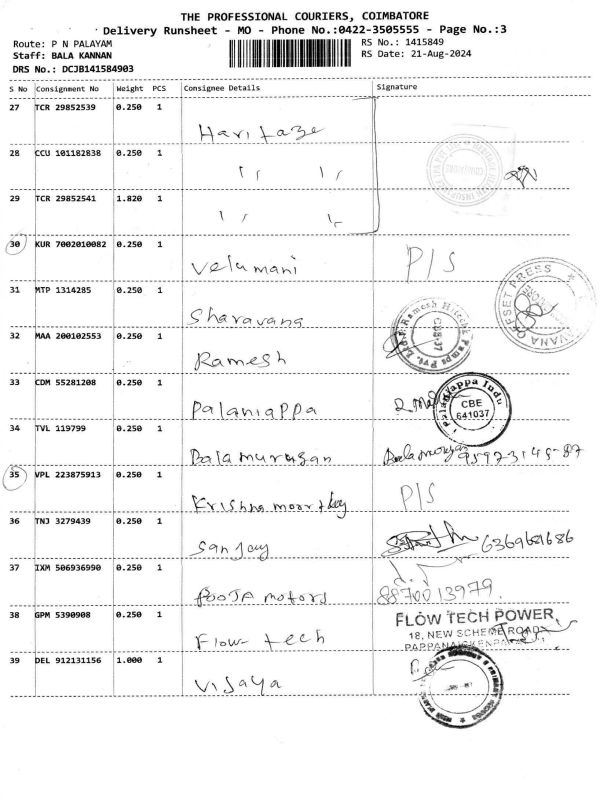 THE PROFESSIONAL COURIERS, COIMBATORE
Delivery Runsheet - MO - Phone No.:0422-3505555 - Page No.:3
Route: P N PALAYAM RS No.: 1415849
Staff: BALA KANNAN RS Date: 21-Aug-2024
DRS No.: DCJB141584903
S No Consignment No Weight PCS Consignee Details Signature
27 TCR 29852539 0.250 1
Haritage
28 CCU 101182838 0.250 1
" "
29 TCR 29852541 1.820 1
" "
30 KUR 7002010082 0.250 1
Velumani P/S
31 MTP 1314285 0.250 1
Sharavana
OFFSET PRESS
32 MAA 200102553 0.250 1
Ramesh
Ramesh Hitech Pumps Pvt. Ltd.
CBE-37
33 CDM 55281208 0.250 1
Palaniappa
Palaniappa Indu
CBE
641037
34 TVL 119799 0.250 1
Balamurugan Balamurugan
35 VPL 223875913 0.250 1
Krishna moorthy P/S
36 TNJ 3279439 0.250 1
Sanjay 6369681686
37 IXM 506936990 0.250 1
POOJA motors 8870013979.
38 GPM 5390908 0.250 1
Flow tech
FLOW TECH POWER,
18, NEW SCHEME ROAD
39 DEL 912131156 1.000 1
Vijaya